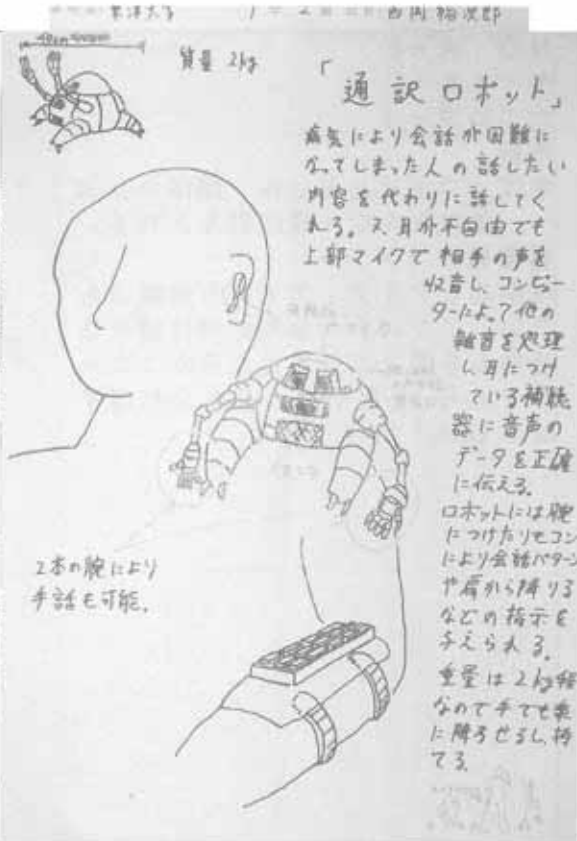 質量 2kg
「通訳ロボット」
病気により会話が困難に
なってしまった人の話したい
内容を代わりに話してく
れる。又、耳が不自由でも
上部マイクで相手の声を
収音し、コンピュー
ターによって他の
雑音を処理
し耳につけ
ている補聴
器に音声の
データを正確
に伝える。
ロボットには腕
につけたリモコン
により会話パターン
や肩から降りる
などの指示を
与えられる。
重量は2kg程
なので手でも楽
に降ろせるし、持
てる。
2本の腕により
手話も可能。